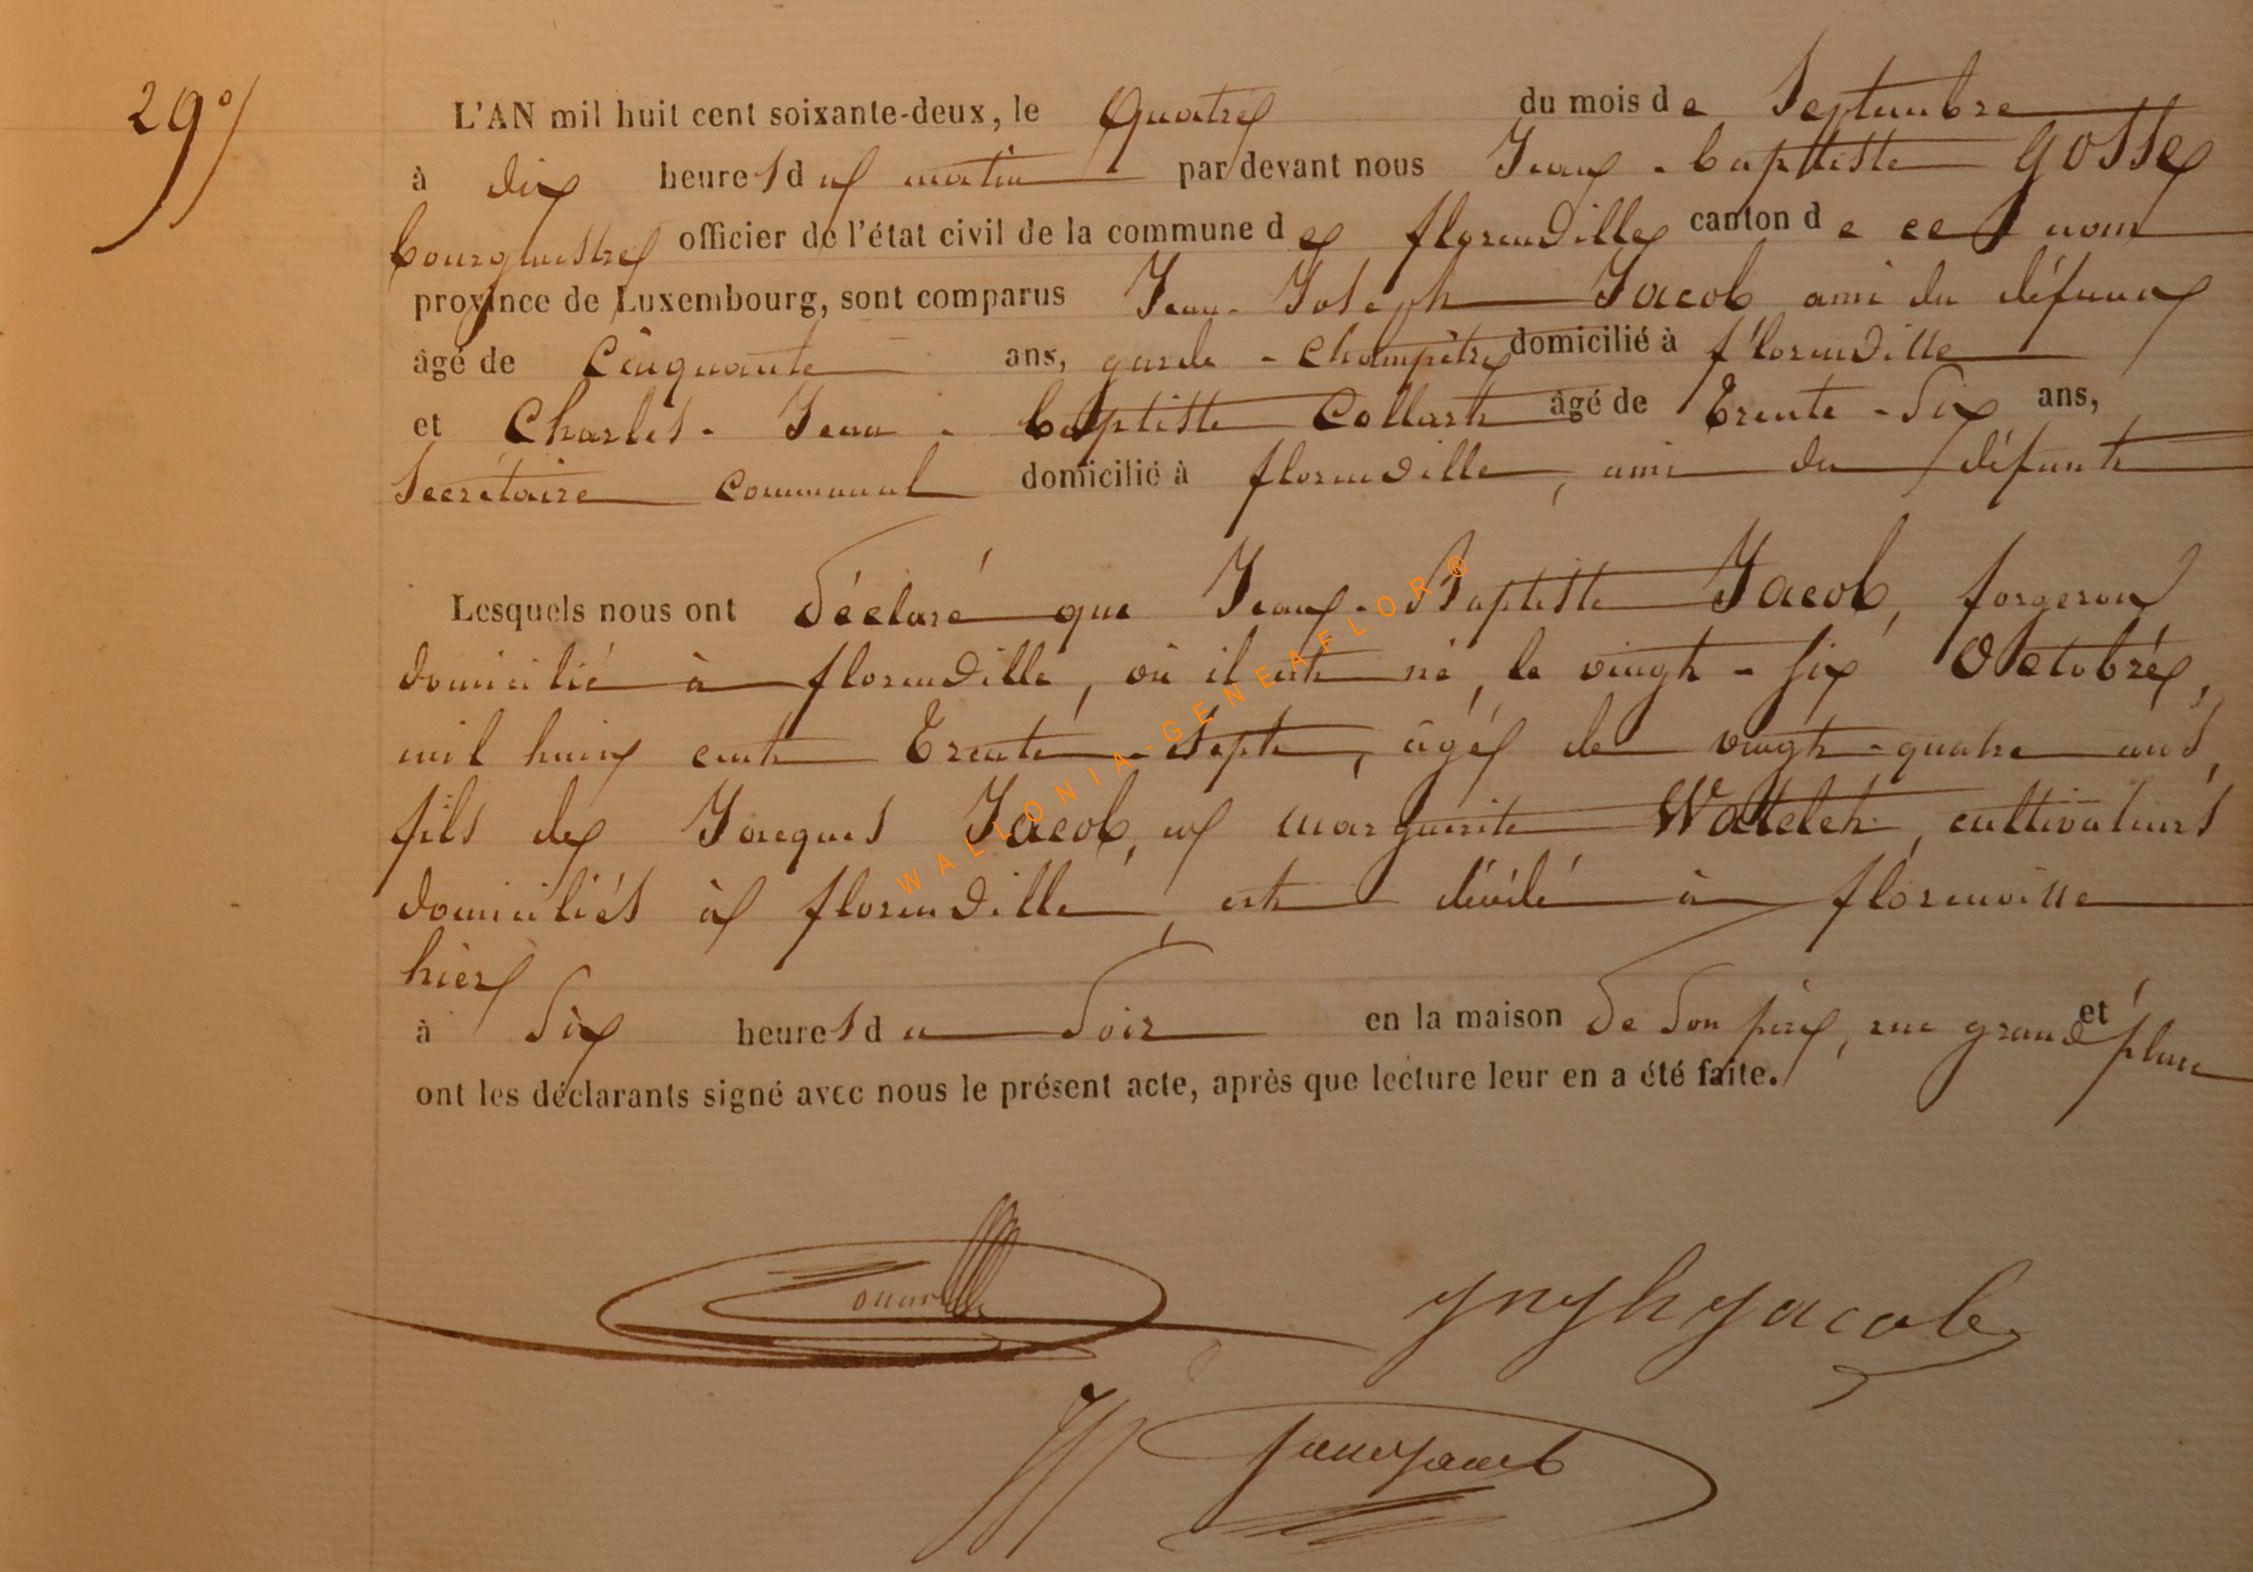 29°/
L'AN mil huit cent soixante-deux, le Quatre du mois de Septembre
à dix heures du matin par devant nous Jean-baptiste GOSSE
bourgmestre officier de l'état civil de la commune de florenville canton de ce nom
province de Luxembourg, sont comparus Jean-Joseph Jacob ami du défunt
âgé de Cinquante ans, garde-Champêtre domicilié à florenville
et Charles-Jean-baptiste Collart âgé de Trente-Six ans,
Secrétaire Communal domicilié à florenville, ami du défunt
Lesquels nous ont déclaré que Jean-Baptiste Jacob, forgeron
domicilié à florenville, où il est né, le vingt-six Octobre,
mil huit cent Trente-Sept, âgé de vingt-quatre ans,
fils de Jacques Jacob, et marguerite Watelet, cultivateurs
domiciliés à florenville, est décédé à florenville
hier
à Six heures du Soir en la maison de Son père, rue grand place et
ont les déclarants signé avec nous le présent acte, après que lecture leur en a été faite.
WALLONIA-GENEAFLOR®
Jacob